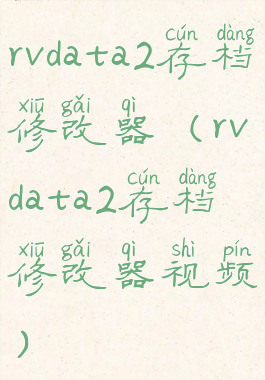 cún dàng
rvdata2存档
xiū gǎi qì
修改器（rv
cún dàng
data2存档
xiū gǎi qì shì pín
修改器视频
）